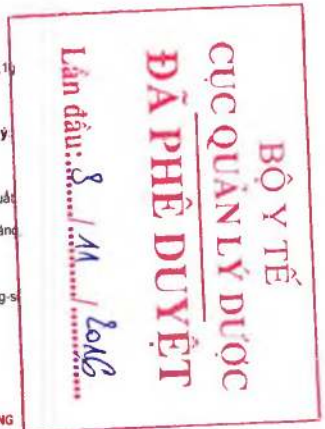 BỘ Y TẾ
CỤC QUẢN LÝ DƯỢC
ĐÃ PHÊ DUYỆT
Lần đầu: 8 / 11 / 2016